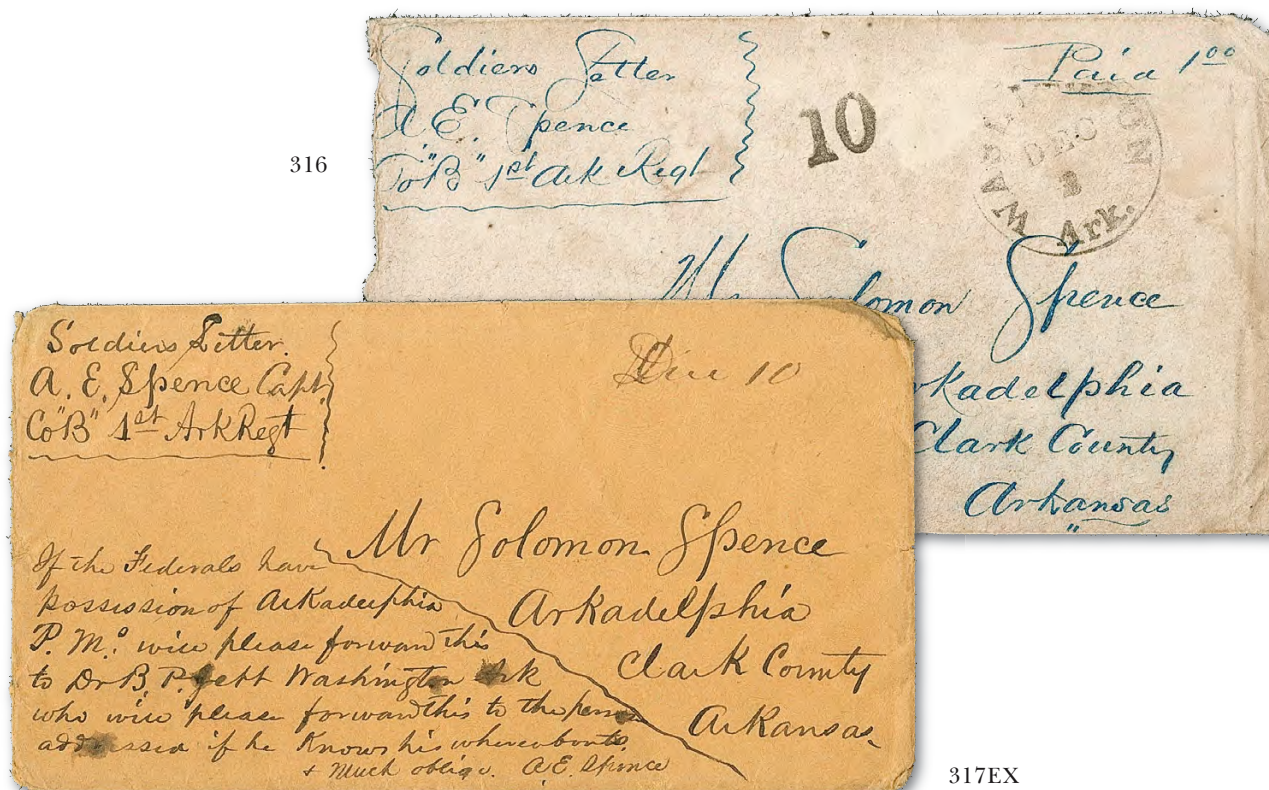 316
Soldiers Letter
A. E. Spence
Co "B" 1st Ark Regt
10
Paid 1 00
DEC
3
Ark.
Mr Solomon Spence
Arkadelphia
Clark County
Arkansas
Soldiers Letter.
A. E. Spence Capt.
Co "B" 1st Ark Regt
Due 10
Mr Solomon Spence
Arkadelphia
Clark County
Arkansas
If the Federals have
possession of Arkadelphia
P. M. will please forward this
to Dr B. P. Jett Washington Ark
who will please forward this to the person
addressed if he Knows his whereabouts.
+ Much oblige. A. E. Spence
317EX